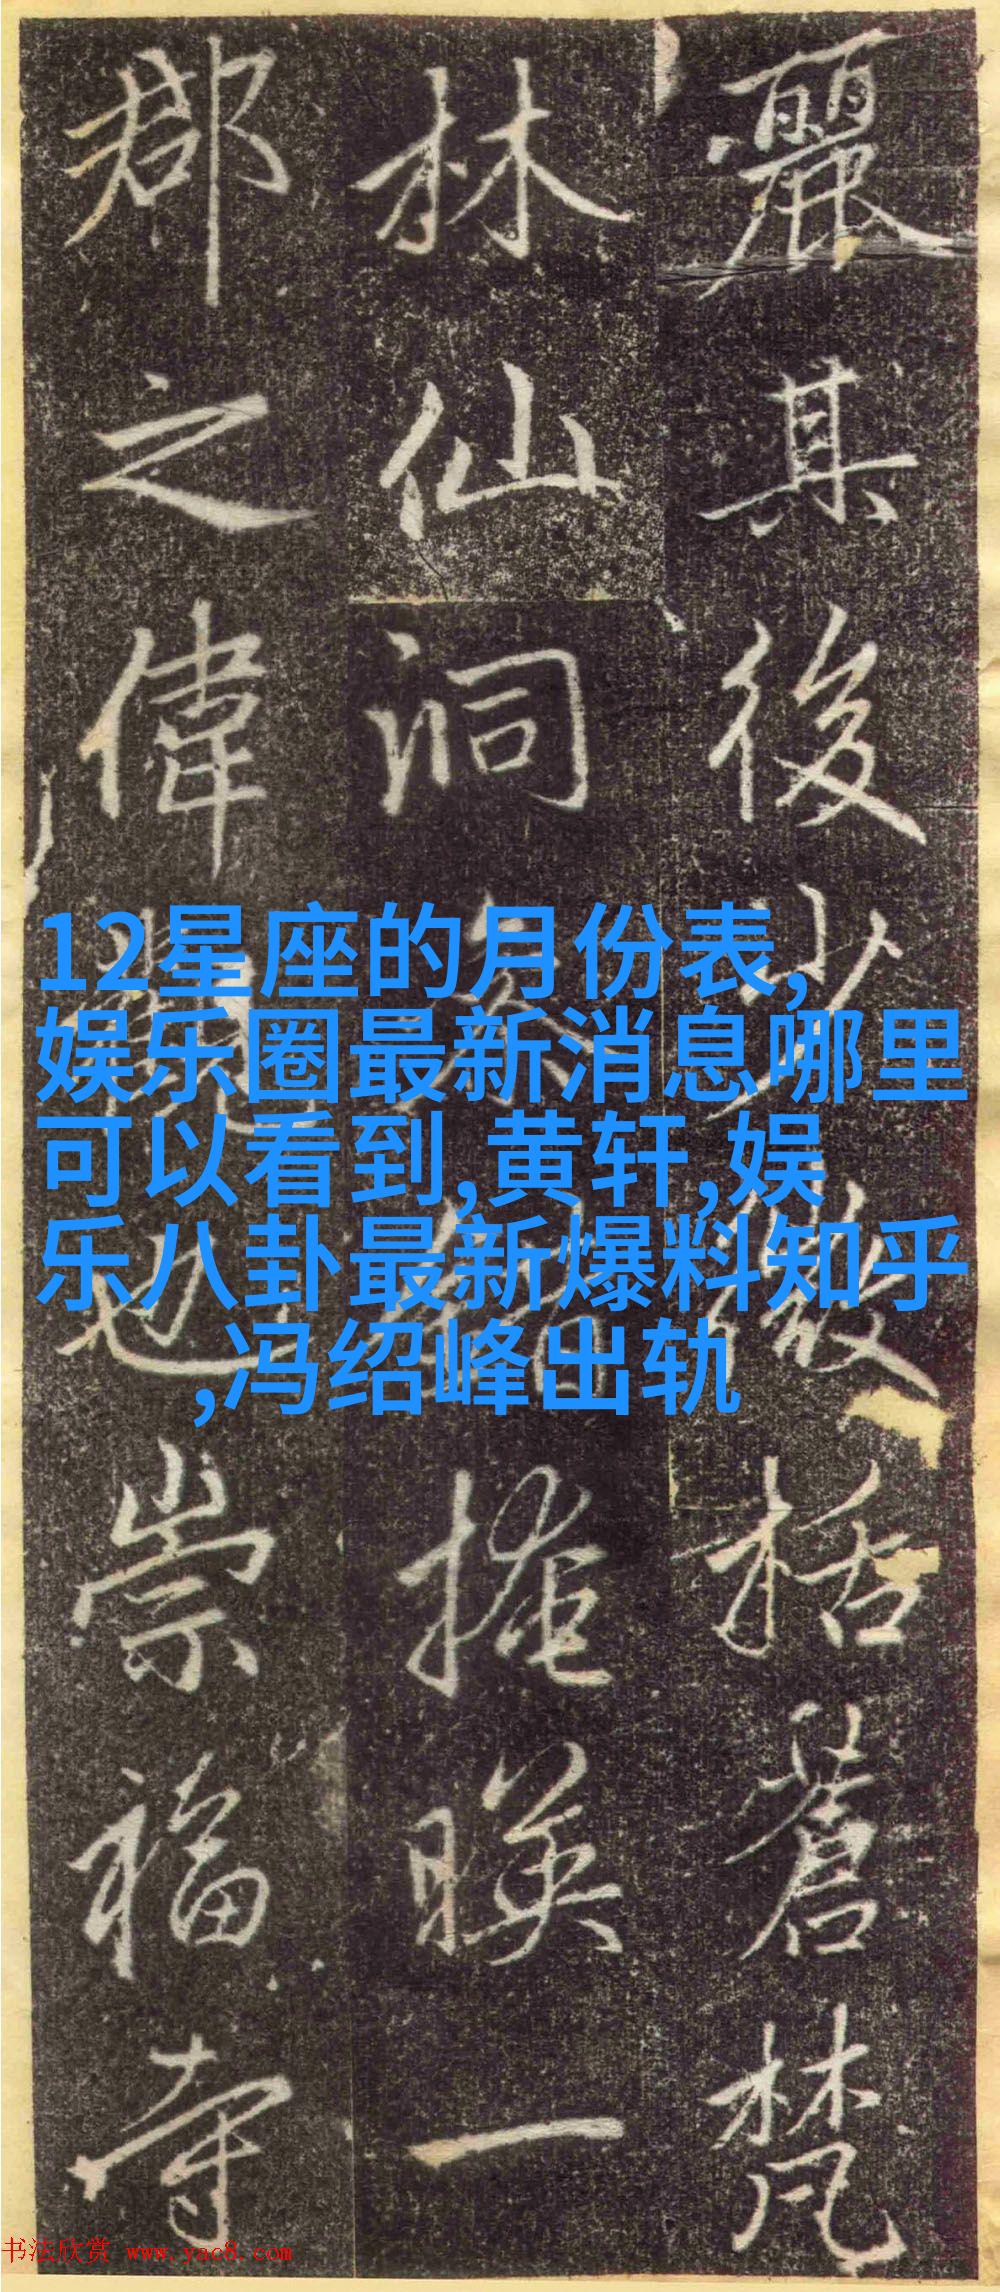 麗其後少微括蒼梵
林仙洞
掩暎一
郡之偉
也崇福寺
12星座的月份表,
娱乐圈最新消息哪里
可以看到,黄轩,娱
乐八卦最新爆料知乎
,冯绍峰出轨
书法欣赏 www.yac8.com